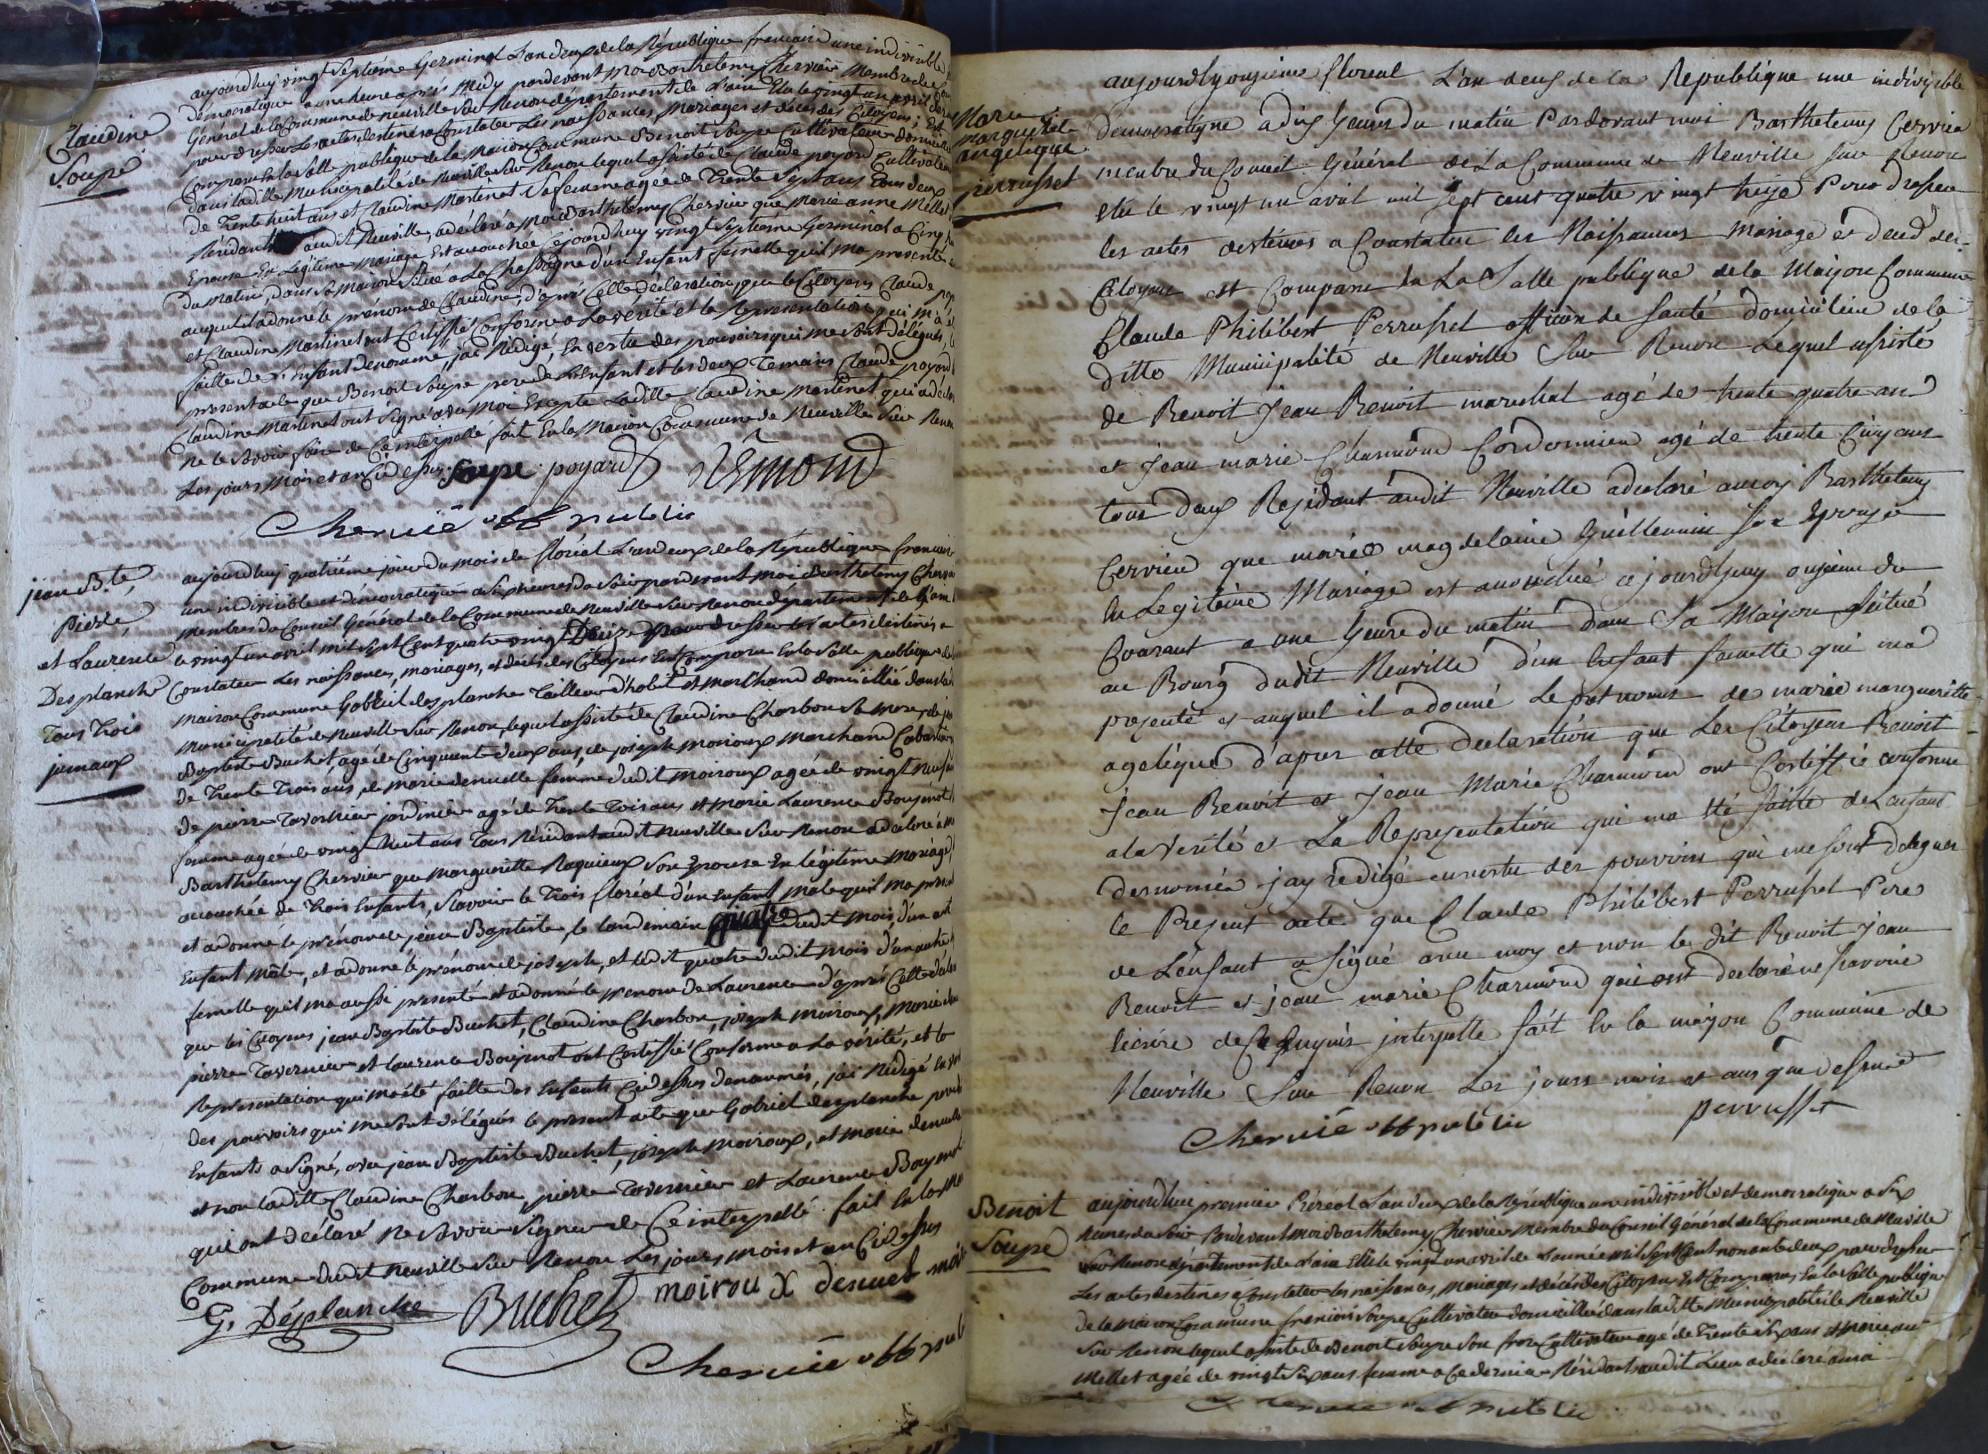 Claudine
Soupe
aujourdhuy vingt septième Germinal L'an deux de la République francaise une indivisible
démocratique a une heure après Midy pardevant moi Barthelemy Chervié Membre du
Général de la Commune de Neuville sur Renon département de l'ain Elu le vingt un avril
pour dresser Les actes destinés a Constater Les naissances, Mariages et décès des Citoyens, Est
Comparu En la Salle publique de la Maison Commune Benoit Soupe Cultivateur domicilié
dans laditte Municipalité de Neuville sur Renon lequel assisté de Claude poyard Cultivateur
de Trente huit ans et Claudine Martinet sa femme agée de Trente Sept ans Tous deux
Résidants audit Neuville, a déclaré a Moi Barthelemy Chervier que Marie anne Millet
Epouse En Légitime Mariage Est accouchée Cejourdhuy vingt Septième Germinal a Cinq
du Matin, dans sa Maison Situé a La Chassagne d'un Enfant femelle quil ma présenté
auquel il a donné le prénom de Claudine, d'après Cette déclaration, que le Citoyens Claude
et Claudine Martinet ont Certiffié Conforme a La vérité et la Représentation qui m'a
faitte de L'Enfant dénommé, j'ai Rédigé, En vertu des pouvoirs qui me sont délégués,
présent acte que Benoit Soupe pere de L'Enfant et les deux Temoins Claude poyard
Claudine Martinet ont Signé avec Moi Excepté Laditte Claudine Martinet qui a déclaré
Ne le Savoir faire de Ce interpellé fait En la Maison Commune de Neuville sur Renon
Les jours Mois et an Cy dessus. Soupe poyard Rêmond
Chervié off public
jean B.te
pierre,
et Laurence
Desplanche
Tous Trois
jumaux
aujourdhuy quatrième jour du mois de floréal L'an deux de la République francaise
une indivisible et démocratique a Six heures du Soir pardevant Moi Barthelemy Chervié
Membres du Conseil Général de la Commune de Neuville sur Renon département de L'ain
le vingt un avril mil sept Cent quatre vingt treize pour dresser les actes destinés a
Constater Les naissances, mariages, et décès des Citoyens Est Comparu En la Salle publique de
Maison Commune Gabriel desplanche Tailleur d'habit et Marchand domicillié dans la
Municipalité de Neuville sur Renon, lequel assisté de Claudine Charbon Sa Mere, de
Baptiste Buchet, agé de Cinquante deux ans, de joseph moiroux Marchand Cabartier
de Trente Trois ans, de Marie denuelle femme dudit moiroux agée de vingt neuf
de pierre Tavernier jardinier agé de Trente Trois ans et Marie Laurence Boujinot
femme agée de vingt huit ans Tous Résidants audit Neuville sur Renon a déclaré a
Barthelemy Chervier que Marguerite Requieux Son Epouse En légitime Mariage
accouchée de Trois Enfants, Savoir le Trois floréal d'un Enfant Male quil ma présenté
et a donné le prénom de jean Baptiste, le Landemain quatre dudit Mois d'un
Enfant Mâle, et a donné le prénom de joseph, et ledit quatre dudit Mois d'un autre
femelle quil ma aussi présenté et a donné le prenom de Laurence d'après Cette
que les Citoyens jean Baptiste Buchet, Claudine Charbon, joseph Moiroux, Marie
pierre Tavernier et Laurence Boujinot ont Certiffié Conforme a La vérité, et la
Représentation qui m'a été faitte des Enfants Cydessus dénommés, j'ai Rédigé En
des pouvoirs qui me sont délégués le présent acte que Gabriel desplanche
Enfants a Signé, avec jean Baptiste Buchet, joseph Moiroux, et Marie
et non laditte Claudine Charbon pierre Tavernier et Laurence
qui ont déclaré Ne Savoir Signer de Ce interpellé fait En la
Commune dudit Neuville sur Renon Les jours Mois et an Cydessus
G. Déplanche Buchet moirou X denuel
Chervié off
Marie
margueritte
angelique
perrusset
aujourdhy onzieme floreal L'an deus de la Republique une indivizible
democratique a dix heures du matin Pardevant moi Barthelemy Cervier
membre du Conseil Général de La Commune de Neuville sur Renon
elu le vingt un avril mil sept cent quatre vingt treize Pour dresser
les actes destinés a Constater les Naissances Mariage et deced des
Citoyens est Comparu en La Salle publique de la Maison Commune
Claude Philibert Perrusset officier de santé domicilier de la
ditte Municipalité de Neuville sur Renon Lequel assisté
de Benoit Jean Benoit marechal agé de trente quatre ans
et Jean marie Charmond Cordonnier agé de trente Cinq ans
tous deux Residant audit Neuville a declaré a moy Barthelemy
Cervier que marie magdelaine Guillemin son epouse
en Legitime Mariage est accouchée ce jourdhuy onzieme du
Courant a une heure du matin dans Sa Maison situé
au Bourg dudit Neuville d'un Enfant femelle qui ma
presenté et auquel il a donné Le prenoms de marie margueritte
agelique d'apres cette declaration que Les Citoyens Benoit
Jean Benoit et Jean Marie Charmond ont Certiffié conforme
a la verité et La Representation qui ma eté faitte de Lenfant
denomée jay redigé en vertu des pouvoirs qui me sont delegués
le Present acte que Claude Philibert Perrusset Pere
de L'enfant a signé avec moy et non le dit Benoit Jean
Benoit et jean marie Charmond qui ont declaré ne savoir
lécrire de Ce enquis interpellé fait En la maison Commune de
Neuville Sur Renon Les jours mois et ans que dessus
perrusset
Chervié off public
Benoit
Soupe
aujourdhui premier Prereal L'an deux de la République une indivisible et démocratique a Six
heures du Soir Pardevant Moi Barthelemy Chervier Membre du Conseil Général de la Commune de Neuville
sur Renon département de L'ain Elu le vingt un avril de Lannée mil Sept Cent nonante deux pour dresser
Les actes destinés a Constater les naissances, Mariages et décès des Citoyens Est Comparu, En la Salle publique
de la Maison Commune francois Soupe Cultivateur domicillié dans laditte Municipalité de Neuville
sur Renon lequel assisté de Benoit Soupe Son frere Cultivateur agé de Trente Six ans et
Millet agée de vingt Six ans femme a Ce dernier Résidants audit Lieu a déclaré a moi